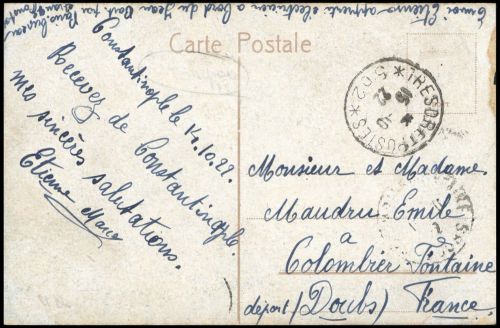 Envoi Etienne apprenti electricien a bord du Jean Bart par
Paris bureau
Carte Postale
Constantinople le 14.10.22.
Recevez de Constantinople
mes sincères salutations.
Etienne Marc
TRESOR ET POSTES * 502 *
Monsieur et Madame
Maudru Emile
à
Colombier Fontaine
départ (Doubs) France